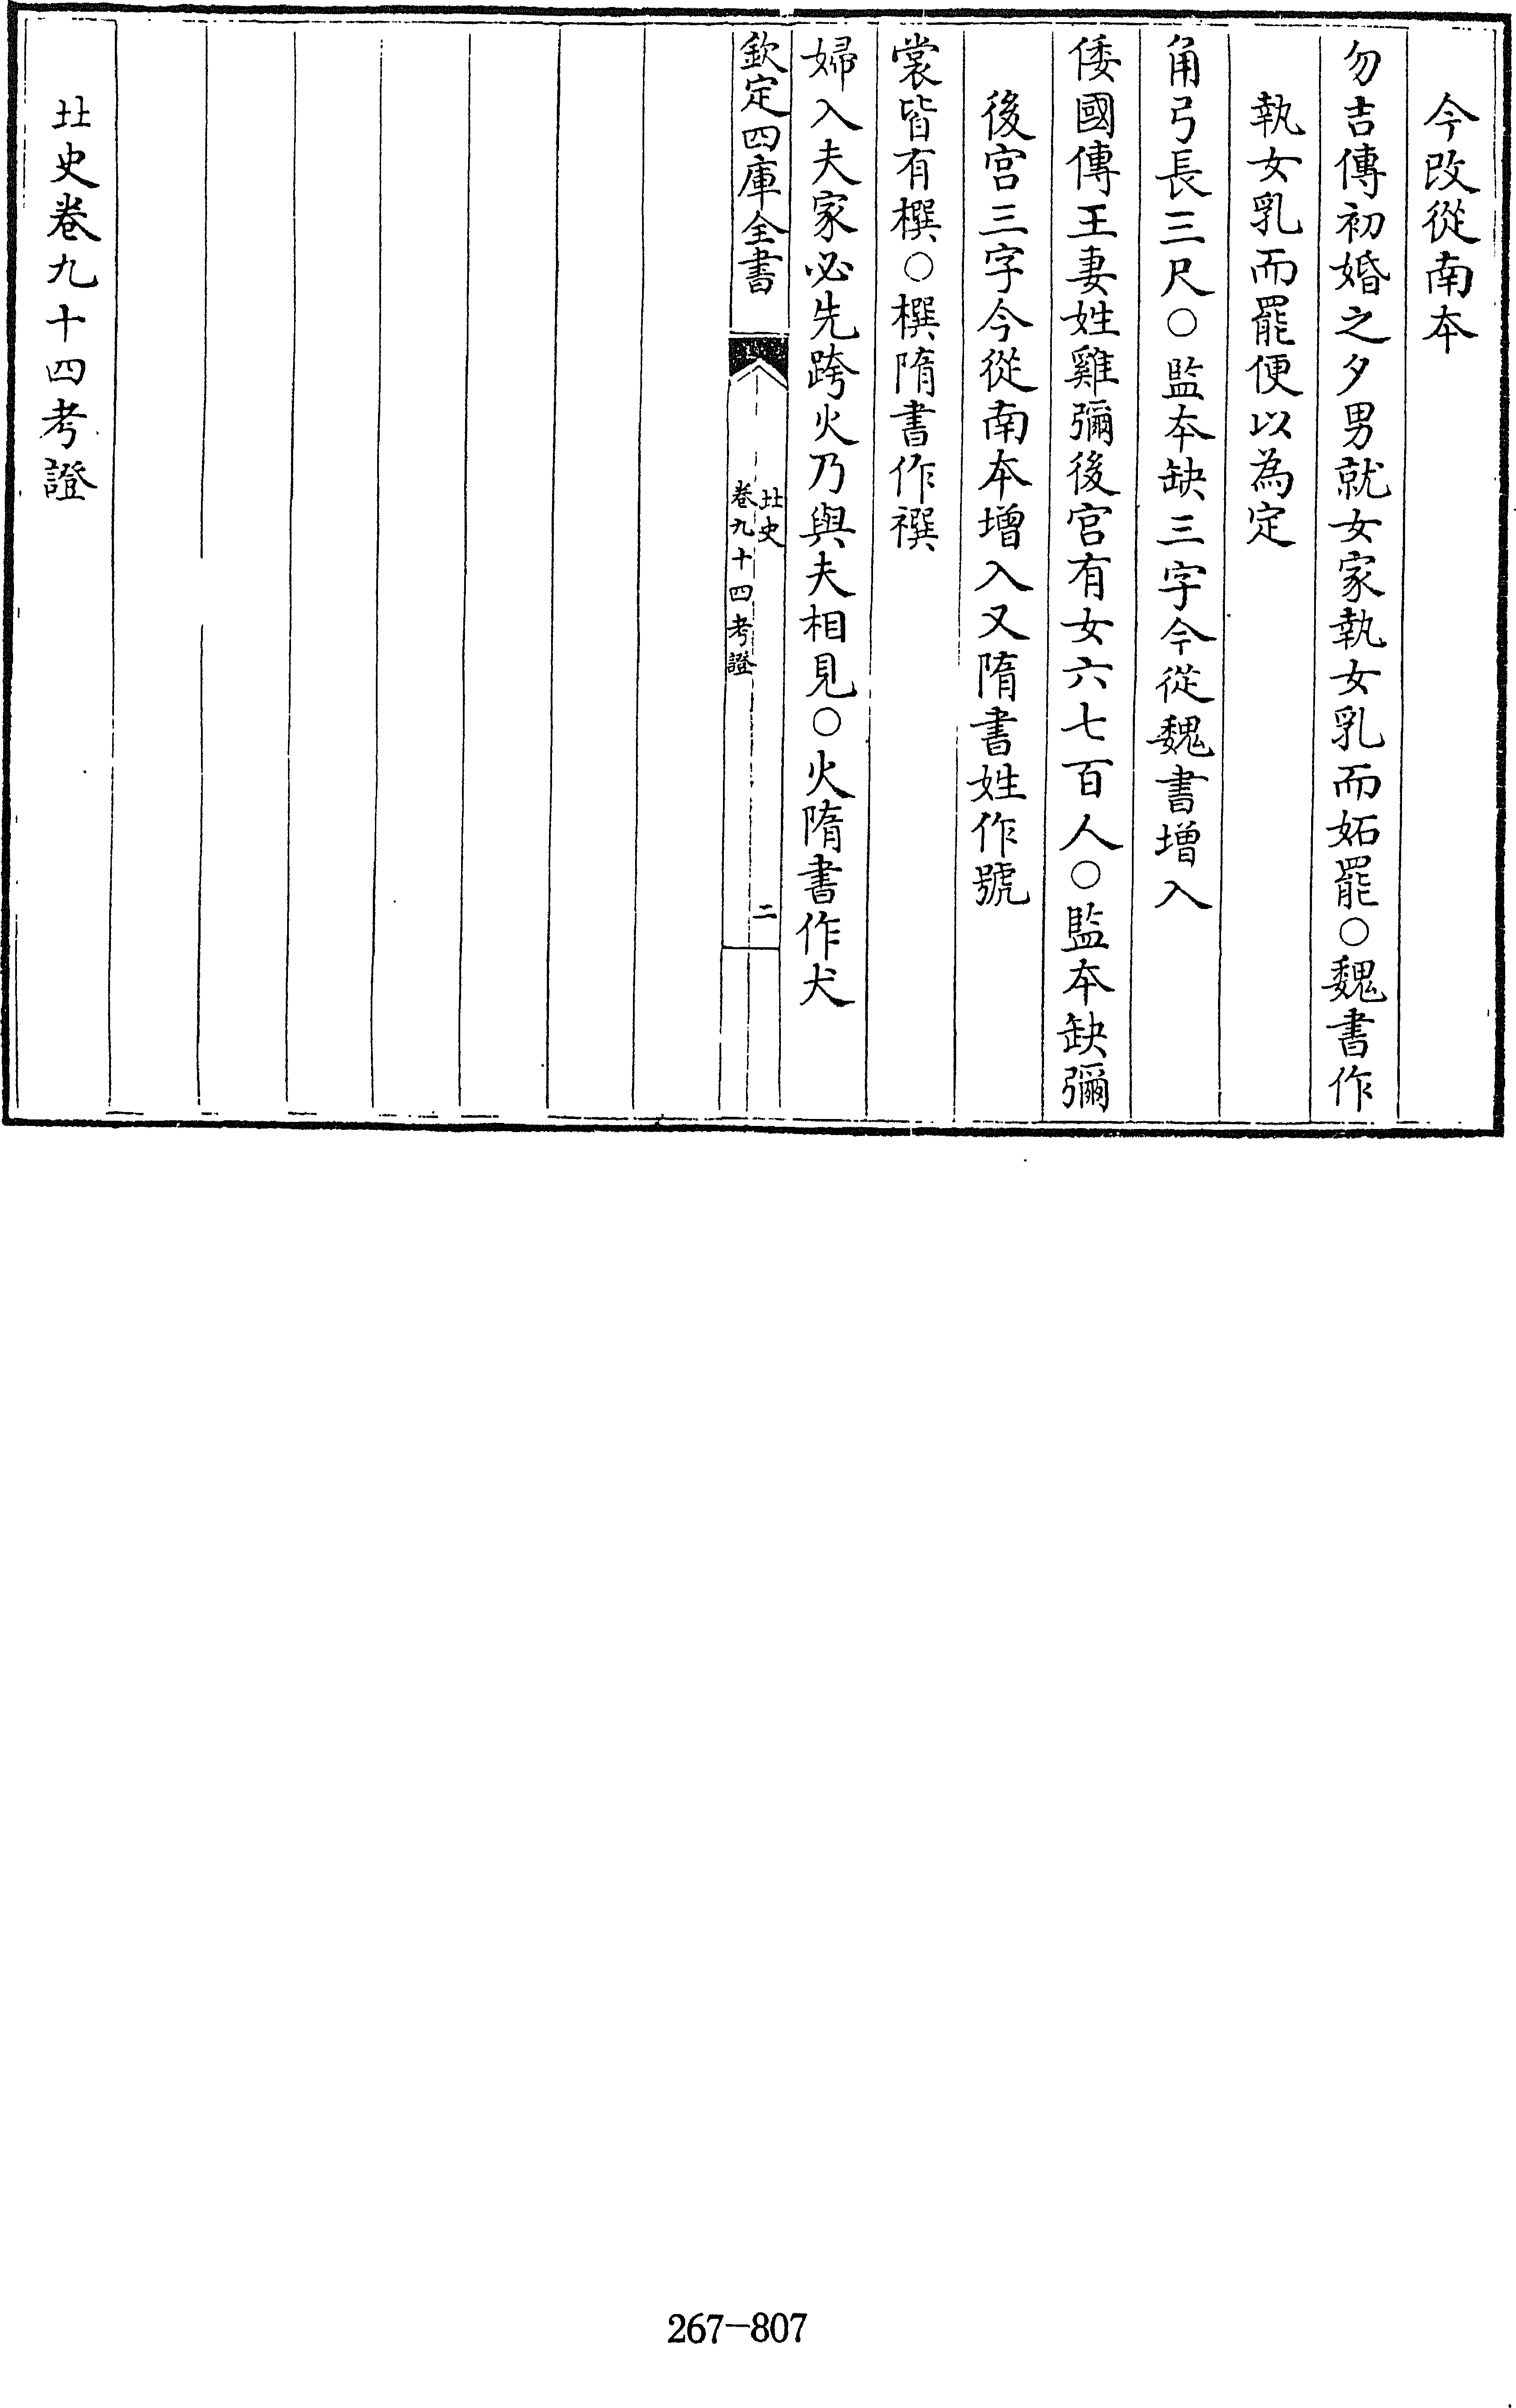 今改從南本
勿吉傳初婚之夕男就女家執女乳而妬罷○魏書作
執女乳而罷便以為定
角弓長三尺○監本缺三字今從魏書增入
倭國傳王妻姓雞彌後宮有女六七百人○監本缺彌
後宮三字今從南本增入又隋書姓作號
裳皆有襈○襈隋書作襈
婦入夫家必先跨火乃與夫相見○火隋書作犬
欽定四庫全書
北史
卷九十四考證
二
北史卷九十四考證
267-807